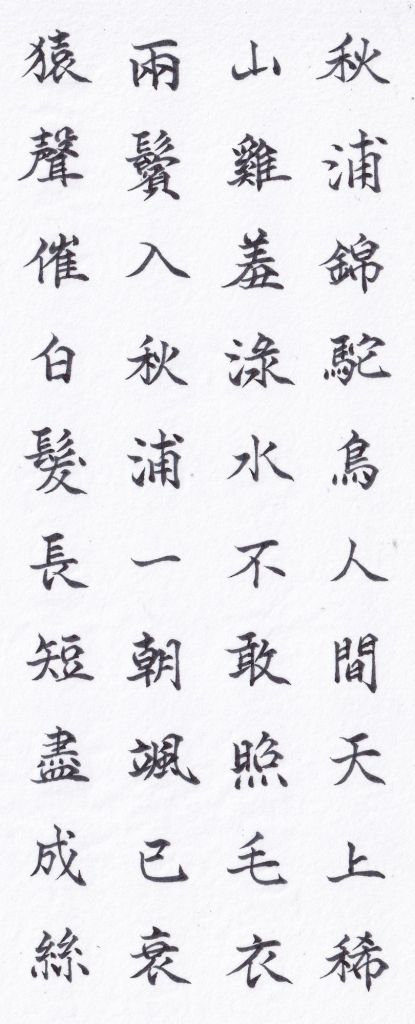 秋浦錦駝鳥人間天上稀
山雞羞淥水不敢照毛衣
兩鬢入秋浦一朝颯已衰
猿聲催白髮長短盡成絲